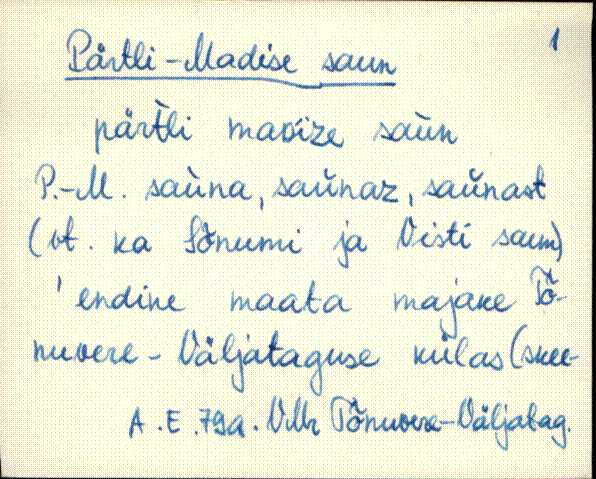 1
Pärtli-Madise saun
pär̀tli mavìze saùn
P.-M. saùna, saŭnaz, saŭnast
(vt. ka Sõnumi ja Visti saun)
' endine maata majake Tõ-
nuvere-Väljataguse külas (skee-
A.E. 79a. VMr Tõnuvere-Väljatag.